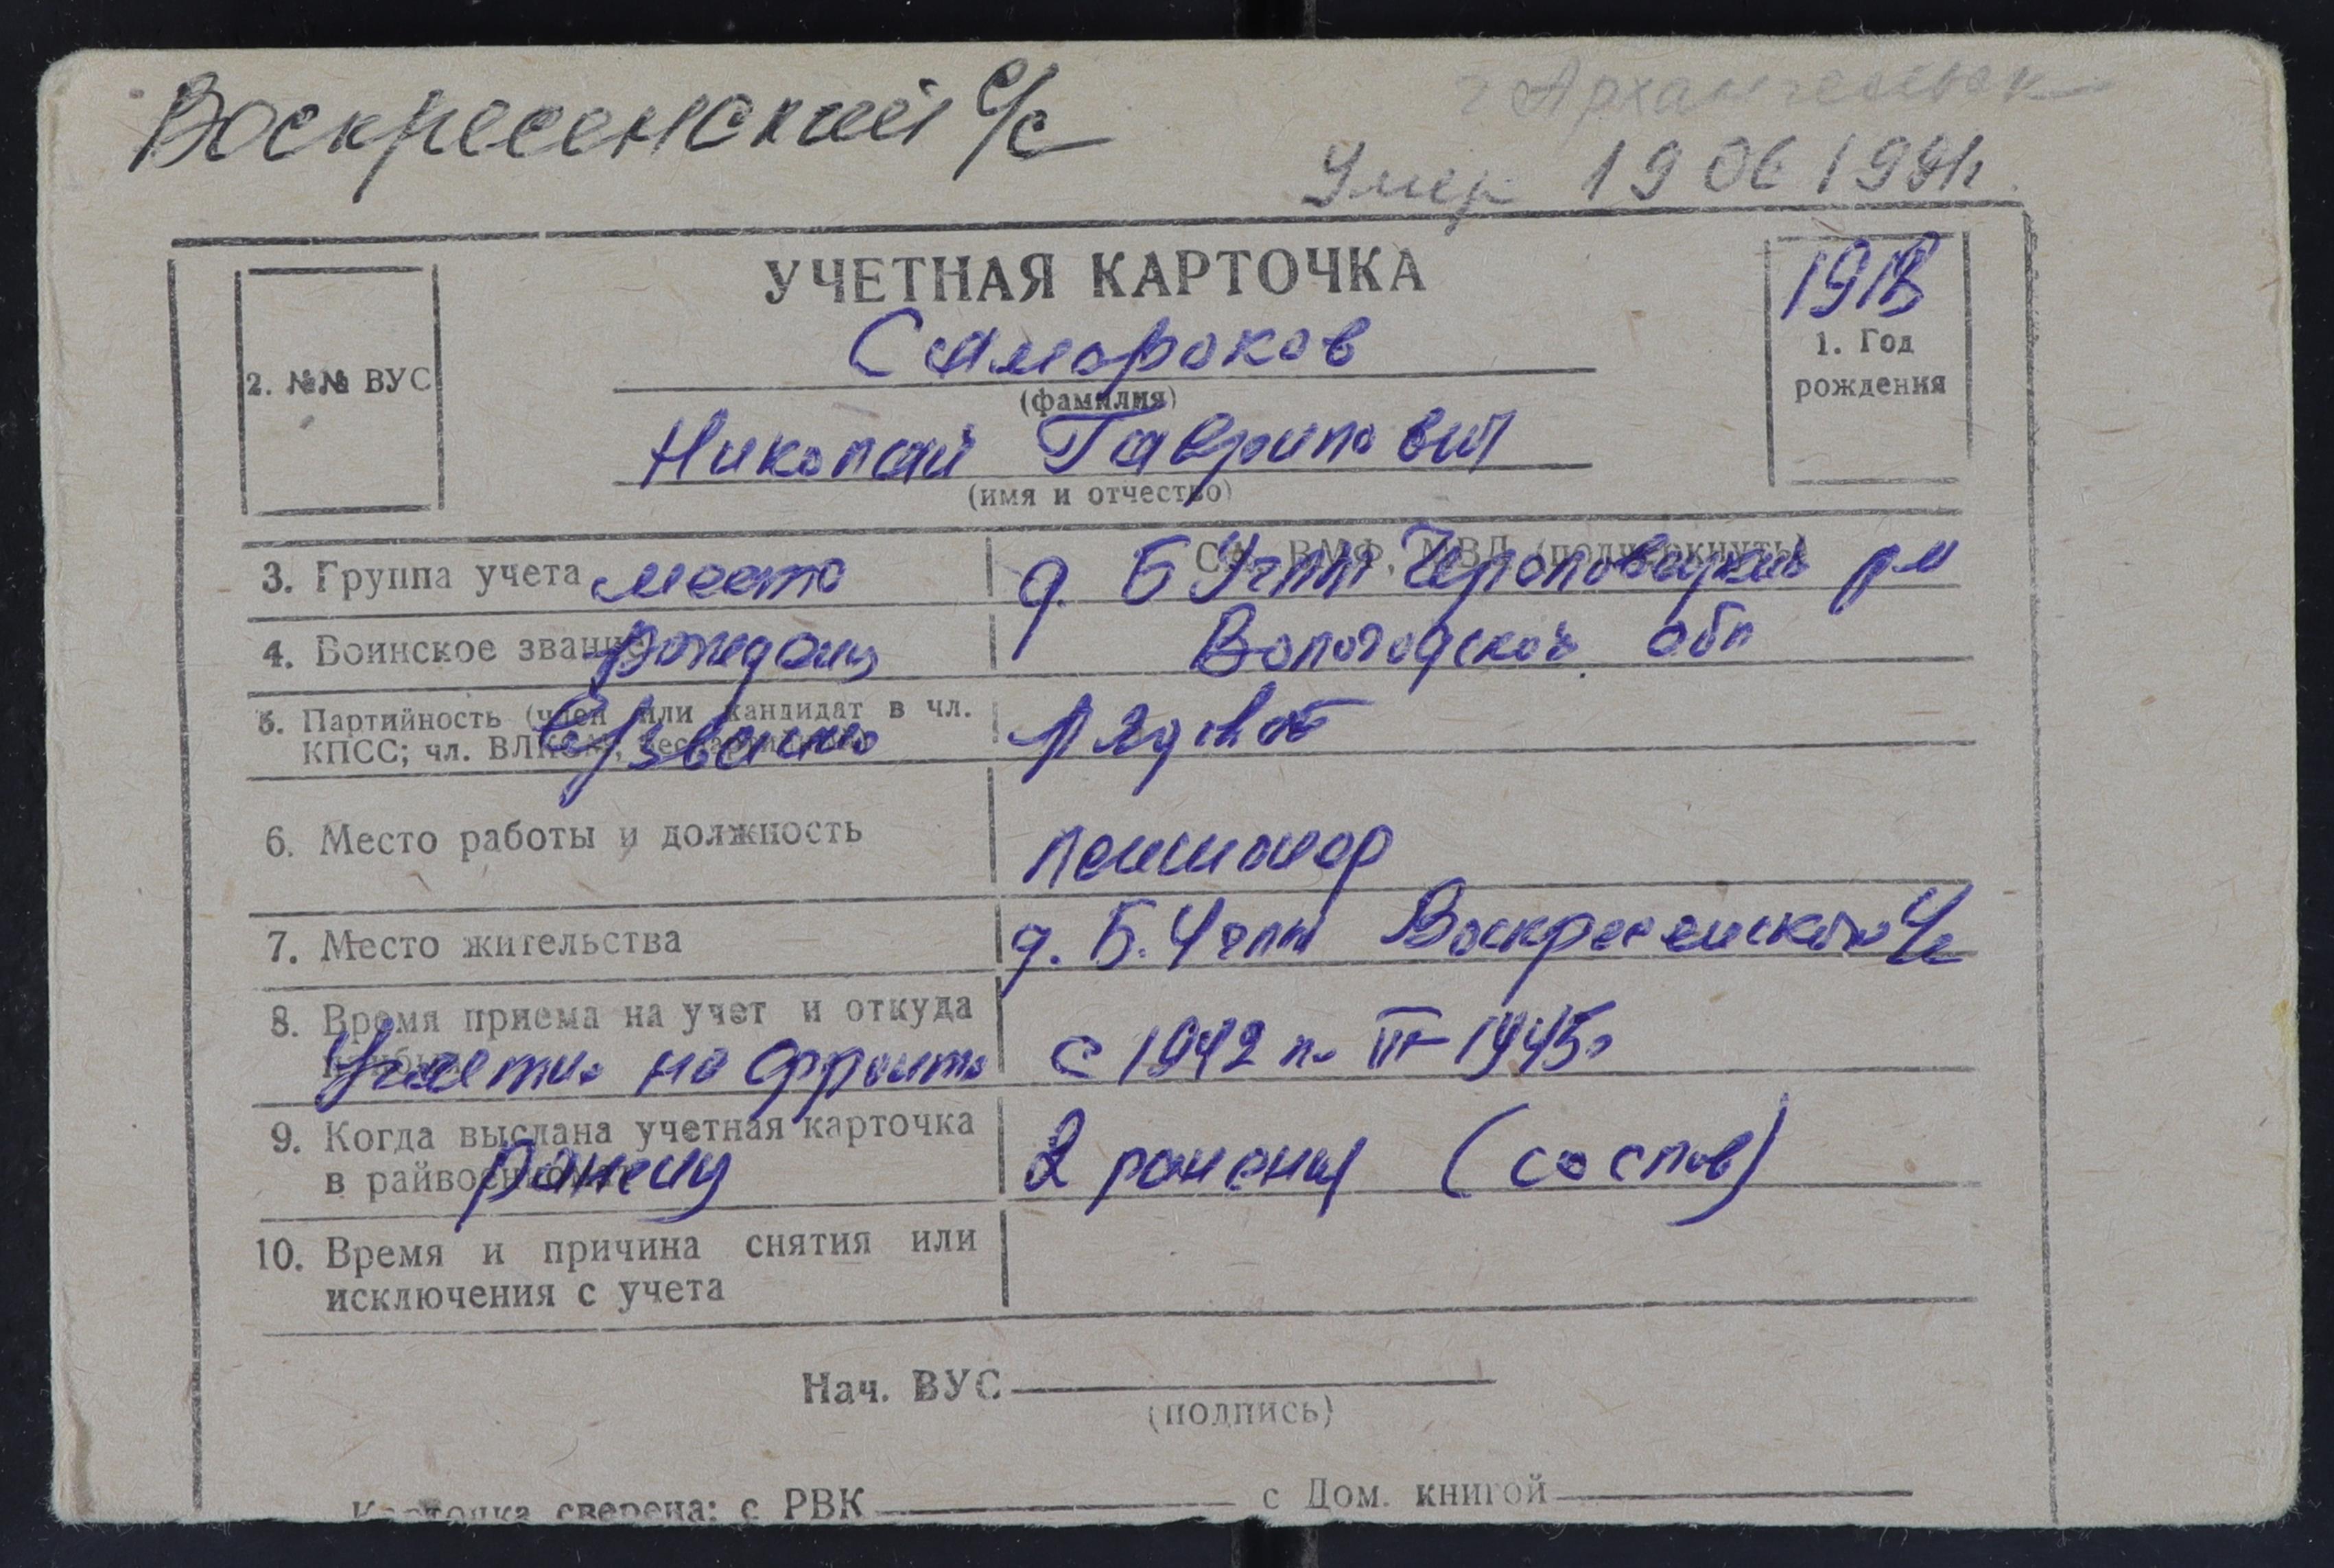 Воскресенский с/с
г Архангельск
Умер 19 06 1994г.
УЧЕТНАЯ КАРТОЧКА
1918
1. Год
рождения
2. №№ ВУС
Самороков
(фамилия)
Николай Гаврилович
(имя и отчество)
СА, ВМФ, МВД (подчеркнуть)
3. Группа учета место д. Б Череповецкий р н
4. Воинское звание рожден Вологодской обл
5. Партийность (член или кандидат в чл.
КПСС; чл. ВЛКСМ, беспартийный) в/звание рядовой
6. Место работы и должность пенсионер
7. Место жительства д. Б. Воскресенского с/с
8. Время приема на учет и откуда
прибыл Участие на фронте с 1942 по III-1945г
9. Когда выслана учетная карточка
в райвоенкомат 2 ранения
10. Время и причина снятия или
исключения с учета
Нач. ВУС
(подпись)
Карточка сверена: с РВК с Дом. книгой